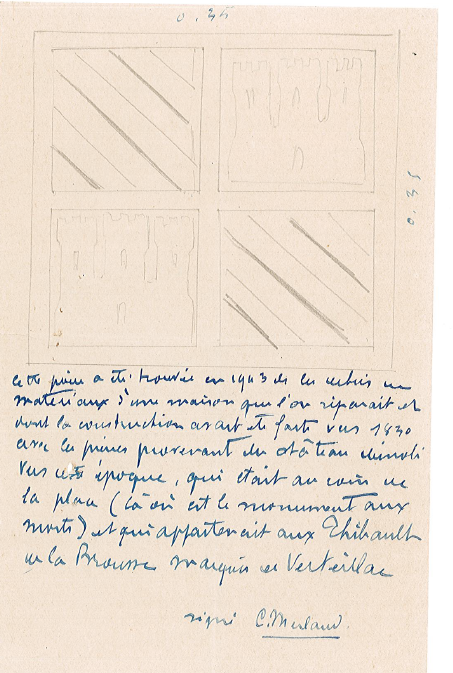 0.35
0.35
cette pierre a été trouvée en 1943 de les
matériaux d'une maison que l'on réparait et
dont la construction avait été faite vers 1830
avec les pierres provenant du château démoli
vers cette époque, qui était au coin de
la place (là où est le monument aux
morts) et qui appartenait aux Thibault
de la Brousse marquis de Verteillac
signé C. Merland.